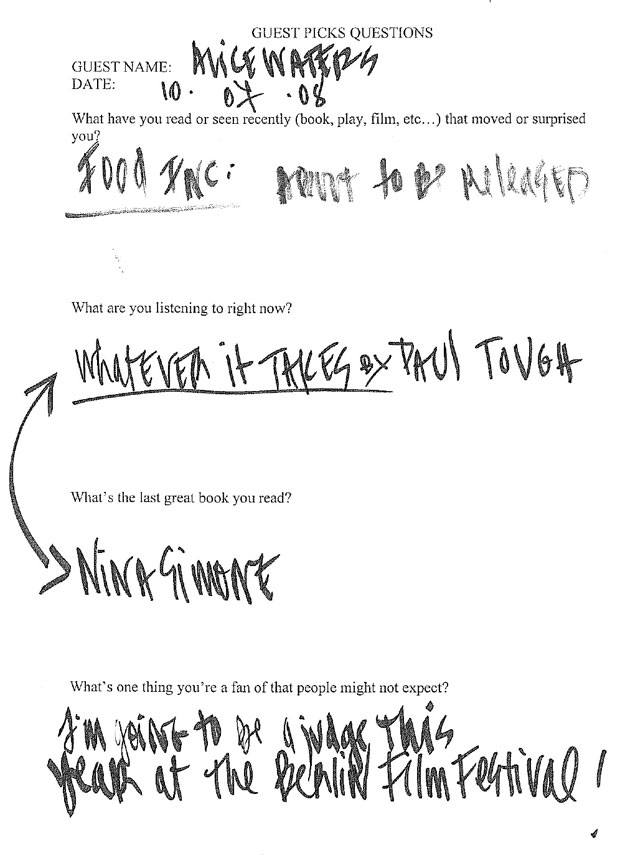 GUEST PICKS QUESTIONS
GUEST NAME: ALICE WATERS
DATE: 10. 07 .08
What have you read or seen recently (book, play, film, etc…) that moved or surprised
you?
FOOD INC: ABOUT to BE ReleaSED
What are you listening to right now?
WhatEVER it TAKES BY PAUL TOUGH
What's the last great book you read?
NINA SIMONE
What's one thing you're a fan of that people might not expect?
I'm going to be a judge This
year at the Berlin Film Festival!